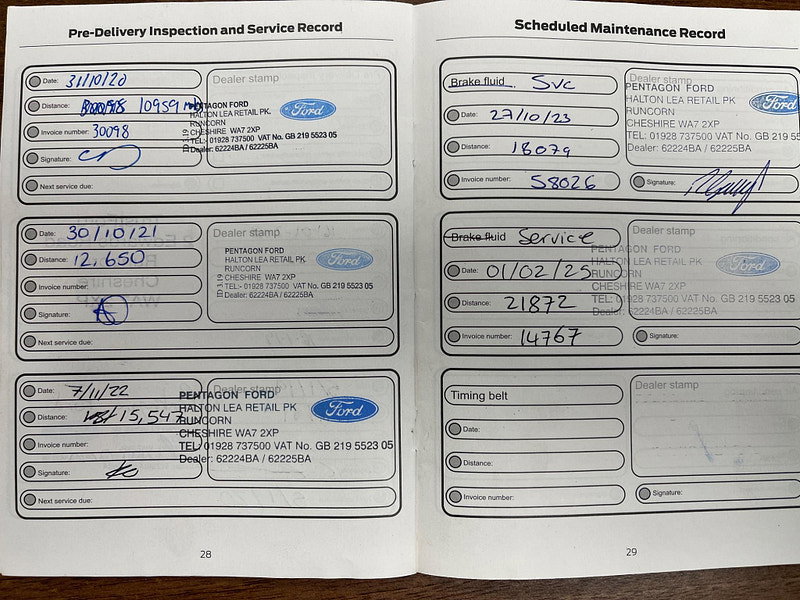 Pre-Delivery Inspection and Service Record
Date: 31/10/20
Distance: 10959 mls
Invoice number: 30098
Signature:
Next service due:
Dealer stamp
PENTAGON FORD
HALTON LEA RETAIL PK
RUNCORN
CHESHIRE WA7 2XP
TEL:- 01928 737500 VAT No. GB 219 5523 05
Dealer: 62224BA / 62225BA
ID 3.19
Ford
Date: 30/10/21
Distance: 12,650
Invoice number:
Signature:
Next service due:
Dealer stamp
PENTAGON FORD
HALTON LEA RETAIL PK
RUNCORN
CHESHIRE WA7 2XP
TEL:- 01928 737500 VAT No. GB 219 5523 05
Dealer: 62224BA / 62225BA
ID 3.19
Ford
Date: 7/11/22
Distance: 15,547
Invoice number:
Signature:
Next service due:
Dealer stamp
PENTAGON FORD
HALTON LEA RETAIL PK
RUNCORN
CHESHIRE WA7 2XP
TEL: 01928 737500 VAT No. GB 219 5523 05
Dealer: 62224BA / 62225BA
Ford
28
Scheduled Maintenance Record
Brake fluid Svc
Date: 27/10/23
Distance: 18079
Invoice number: 58026
Dealer stamp
PENTAGON FORD
HALTON LEA RETAIL PK
RUNCORN
CHESHIRE WA7 2XP
TEL: 01928 737500 VAT No. GB 219 5523 05
Dealer: 62224BA / 62225BA
Ford
Signature:
Brake fluid Service
Date: 01/02/25
Distance: 21872
Invoice number: 14767
Dealer stamp
PENTAGON FORD
HALTON LEA RETAIL PK
RUNCORN
CHESHIRE WA7 2XP
TEL: 01928 737500 VAT No. GB 219 5523 05
Dealer: 62224BA / 62225BA
Ford
Signature:
Timing belt
Date:
Distance:
Invoice number:
Dealer stamp
Signature:
29